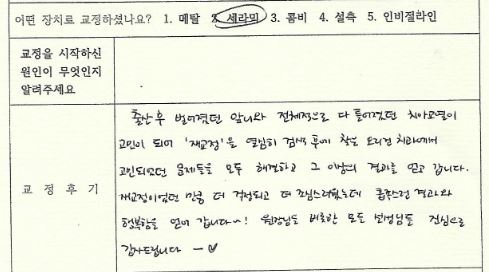 어떤 장치로 교정하셨나요? 1. 메탈 2. 세라믹 3. 콤비 4. 설측 5. 인비절라인
교정을 시작하신
원인이 무엇인지
알려주세요
교 정 후 기
출산 후 벌어졌던 앞니와 전체적으로 다 틀어졌던 치아교열이
고민이 되어 '재교정'을 열심히 검색 후에 찾은 치과에서
고민되었던 문제들을 모두 해결하고 그 이상의 결과를 얻고 갑니다.
재교정이었던 만큼 더 걱정되고 더 조심스러웠는데 결과와
행복함을 얻어 갑니다~! 원장님을 비롯한 모든 선생님들 진심으로
감사드립니다 ㅡ♡